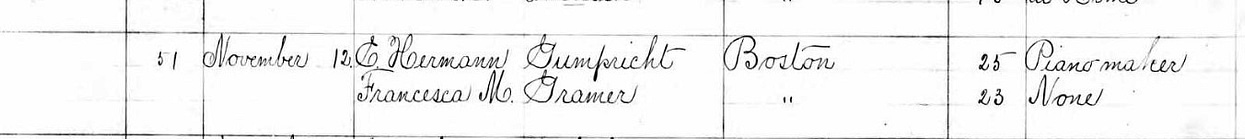 51 November 12. E. Hermann Gumpricht Boston 25 Piano maker
Francesca M. Gramer " 23 None